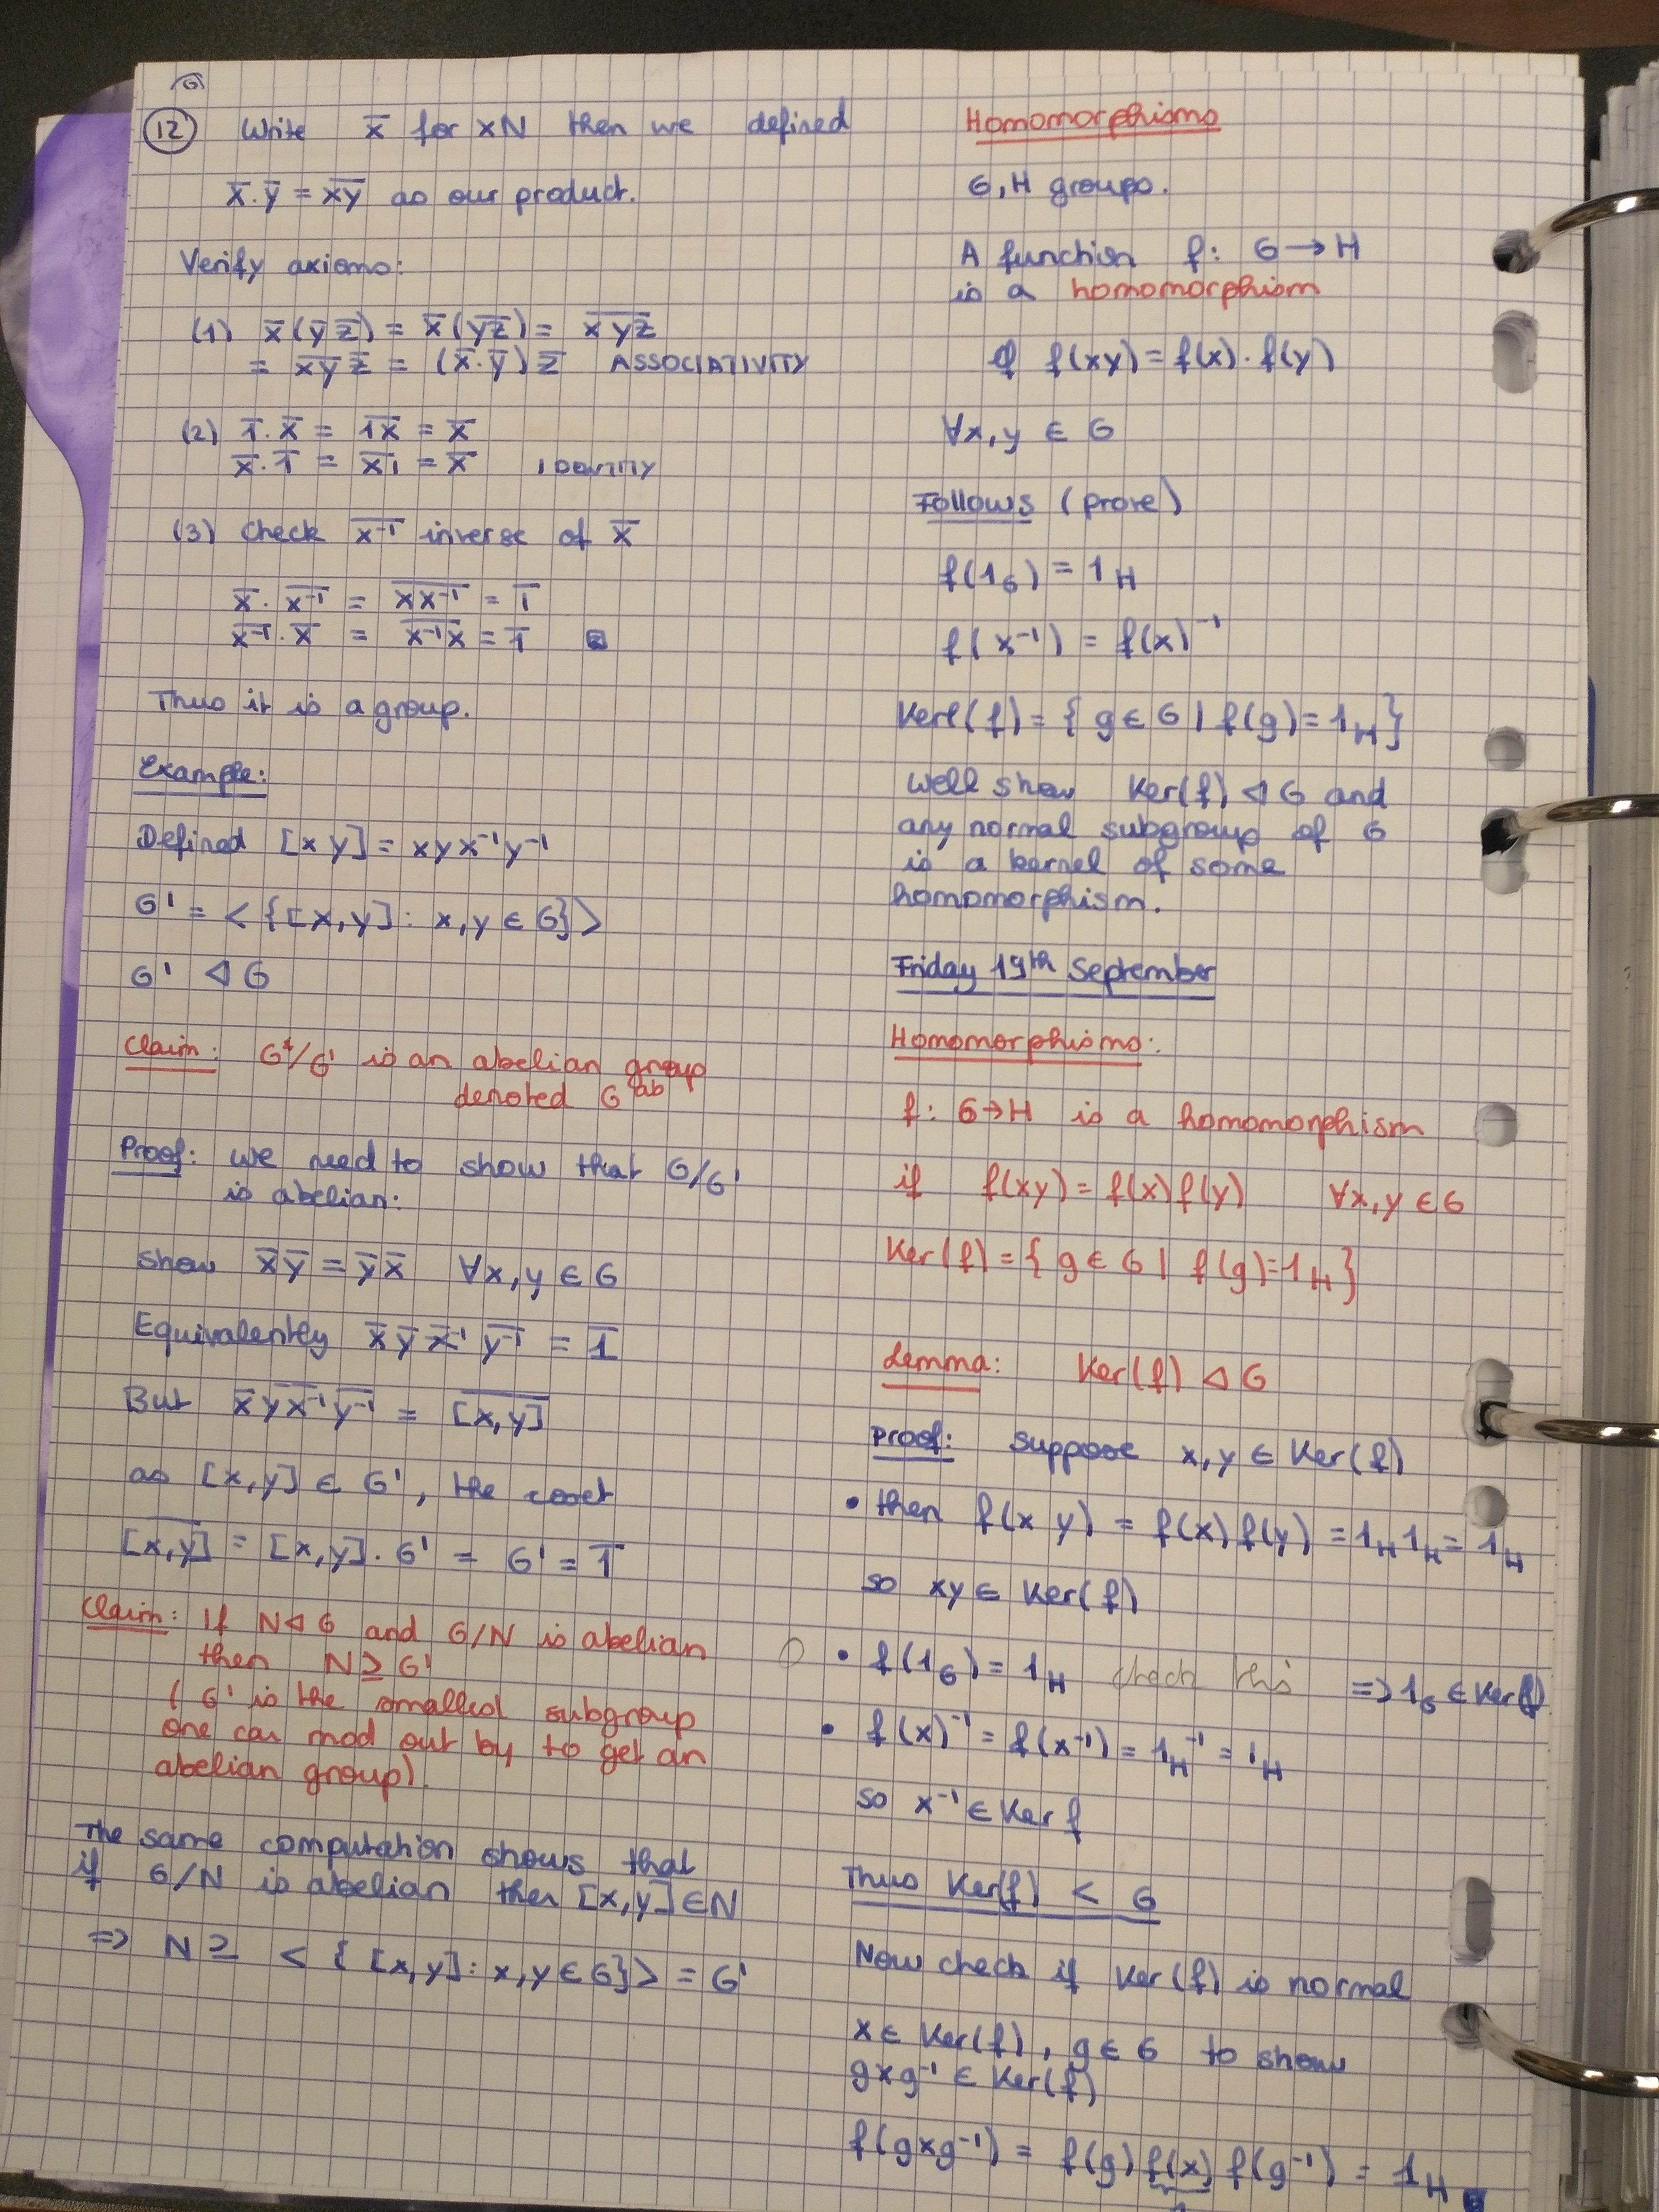 G
12 Write x̄ for xN then we defined
x̄.ȳ = x̅y̅ as our product.
Verify axioms:
(1) x̄(ȳ z̄) = x̄(y̅z̅) = x̅y̅z̅
= x̅y̅ z̄ = (x̄.ȳ) z̄ ASSOCIATIVITY
(2) 1̄.x̄ = 1̅x̅ = x̄
x̄.1̄ = x̅1̅ = x̄ IDENTITY
(3) Check x̅⁻¹̅ inverse of x̄
x̄.x̅⁻¹̅ = x̅x̅⁻¹̅ = 1̄
x̅⁻¹̅.x̄ = x̅⁻¹̅x̅ = 1̄
Thus it is a group.
Example:
Defined [x y] = xyx⁻¹y⁻¹
G' = <{[x,y] : x,y ∈ G}>
G' ⊲ G
Claim: G/G' is an abelian group
denoted G^ab
Proof: we need to show that G/G'
is abelian:
show x̄ȳ = ȳx̄ ∀x,y ∈ G
Equivalently x̄ ȳ x̅⁻¹̅ y̅⁻¹̅ = 1̄
But x̄ y̅x̅⁻¹̅ y̅⁻¹̅ = [̅x̅,̅y̅]̅
as [x,y] ∈ G', the coset
[̅x̅,̅y̅]̅ = [x,y].G' = G' = 1̄
Claim: If N ⊲ G and G/N is abelian
then N ≥ G'
(G' is the smallest subgroup
one can mod out by to get an
abelian group).
The same computation shows that
if G/N is abelian then [x,y] ∈ N
=> N ≥ <{[x,y] : x,y ∈ G}> = G'
Homomorphisms
G, H groups.
A function f: G → H
is a homomorphism
if f(xy) = f(x).f(y)
∀x,y ∈ G
Follows (prove)
f(1_G) = 1_H
f(x⁻¹) = f(x)⁻¹
Kerl(f) = {g ∈ G | f(g) = 1_H}
Well show Ker(f) ⊲ G and
any normal subgroup of G
is a kernel of some
homomorphism.
Friday 19th September
Homomorphisms:
f: G → H is a homomorphism
if f(xy) = f(x)f(y) ∀x,y ∈ G
Ker(f) = {g ∈ G | f(g) = 1_H}
Lemma: Ker(f) ⊲ G
Proof: Suppose x,y ∈ Ker(f)
• then f(x y) = f(x)f(y) = 1_H 1_H = 1_H
so xy ∈ Ker(f)
• f(1_G) = 1_H check this => 1_G ∈ Ker(f)
• f(x)⁻¹ = f(x⁻¹) = 1_H⁻¹ = 1_H
so x⁻¹ ∈ Ker f
Thus Ker(f) < G
Now check if Ker(f) is normal
x ∈ Ker(f), g ∈ G to show
gxg⁻¹ ∈ Ker(f)
f(gxg⁻¹) = f(g) f(x) f(g⁻¹) = 1_H